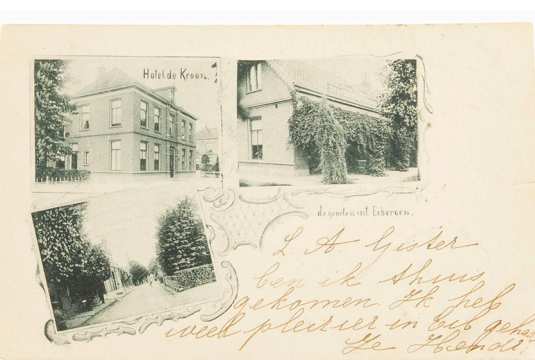 Hotel de Kroon.
de groeten uit Erberven.
L A Gister
ben ik thuis
gekomen Ik heb
veel pleizier in bit geha
Je Hendr